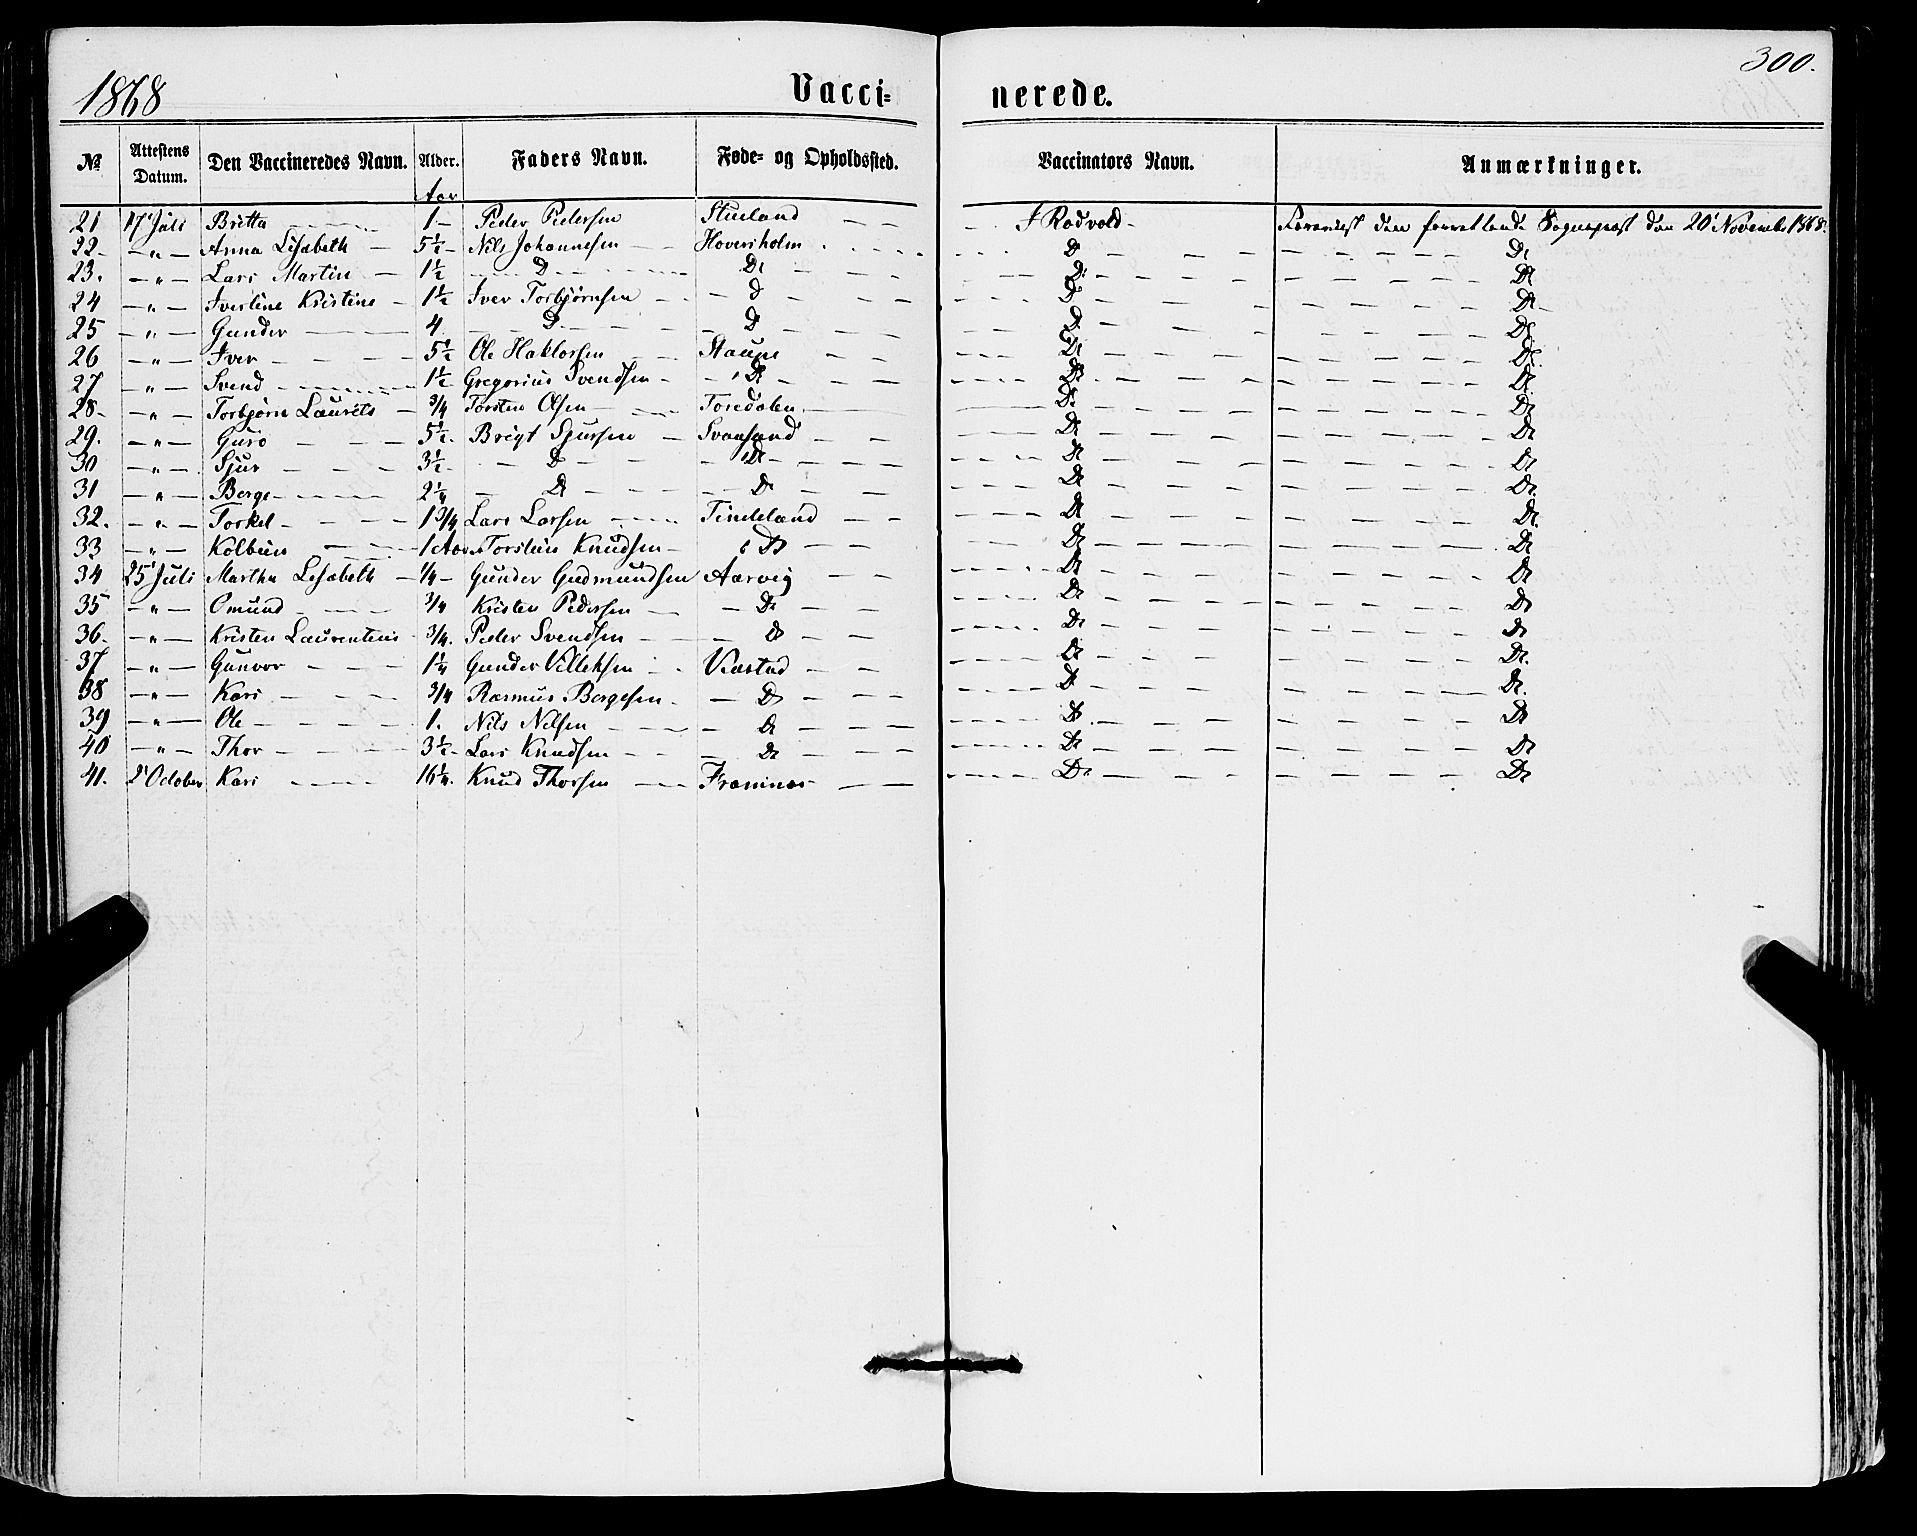 300.
1868 Vacci= nerede.
No Attestens Datum. Den Vaccineredes Navn. Alder. Faders Navn. Føde- og Opholdssted. Vaccinators Navn. Anmærkninger.
Aar
21 17' Juli Britta — 1 — Peder Pedersen — J Rødvold — den 20' November 1868.
22 — " — Anna Lisabeth — 5½ — Nils Johannesen — Hoversholm — Do — Do
23. — " — Lars Martin — 1½ — Do — Do — Do — Do
24 — " — Ivertine Kristine — 1½ Iver Torbjørnsen — Do — Do — Do
25 — " — Gunder — 4 — Do — Do — Do — Do
26 — " — Iver — 5½ — Ole — Do — Do
27 — " — Svend — 1½ — Gregorius Svendsen — Do — Do — Do
28 — " — Torbjørn Laurits — 3/4 Torsten Olsen — Toredalen — Do — Do
29. — " — Guro — 5½ — Brigt Sjursen — Svansand — Do — Do
30 — " — Sjur — 3½ — Do — Do — Do — Do
31 — " — Berge — 2¼ — Do — Do — Do — Do
32. — " — Torkel — 1 3/4 Lars Larsen — Tindeland — Do — Do
33 — " — Kolbein — 1 Aar Torstein Knudsen — Do — Do — Do
34 25' Juli Martha Lisabeth — 1/4 — Gunder Gudmundsen Aarvig — Do — Do
35 — " — Omund — 3/4 Kristen Pedersen — Do — Do — Do
36. — " — Kristen Laurentius — 3/4. Peder Svendsen — Do — Do — Do
37 — " — Gunvor — 1¼ Gunder Villeksen — Viastad — Do — Do
38 — " — Kari — 3/4 Rasmus Bergesen — Do — Do — Do
39 — " — Ole — 1. Nils Nilsen — Do — Do — Do
40 — " — Thor — 3½ — Lars Knudsen — Do — Do — Do
41. 2' October Kari — 16¼. Knud Thorsen — Framnes — Do — Do